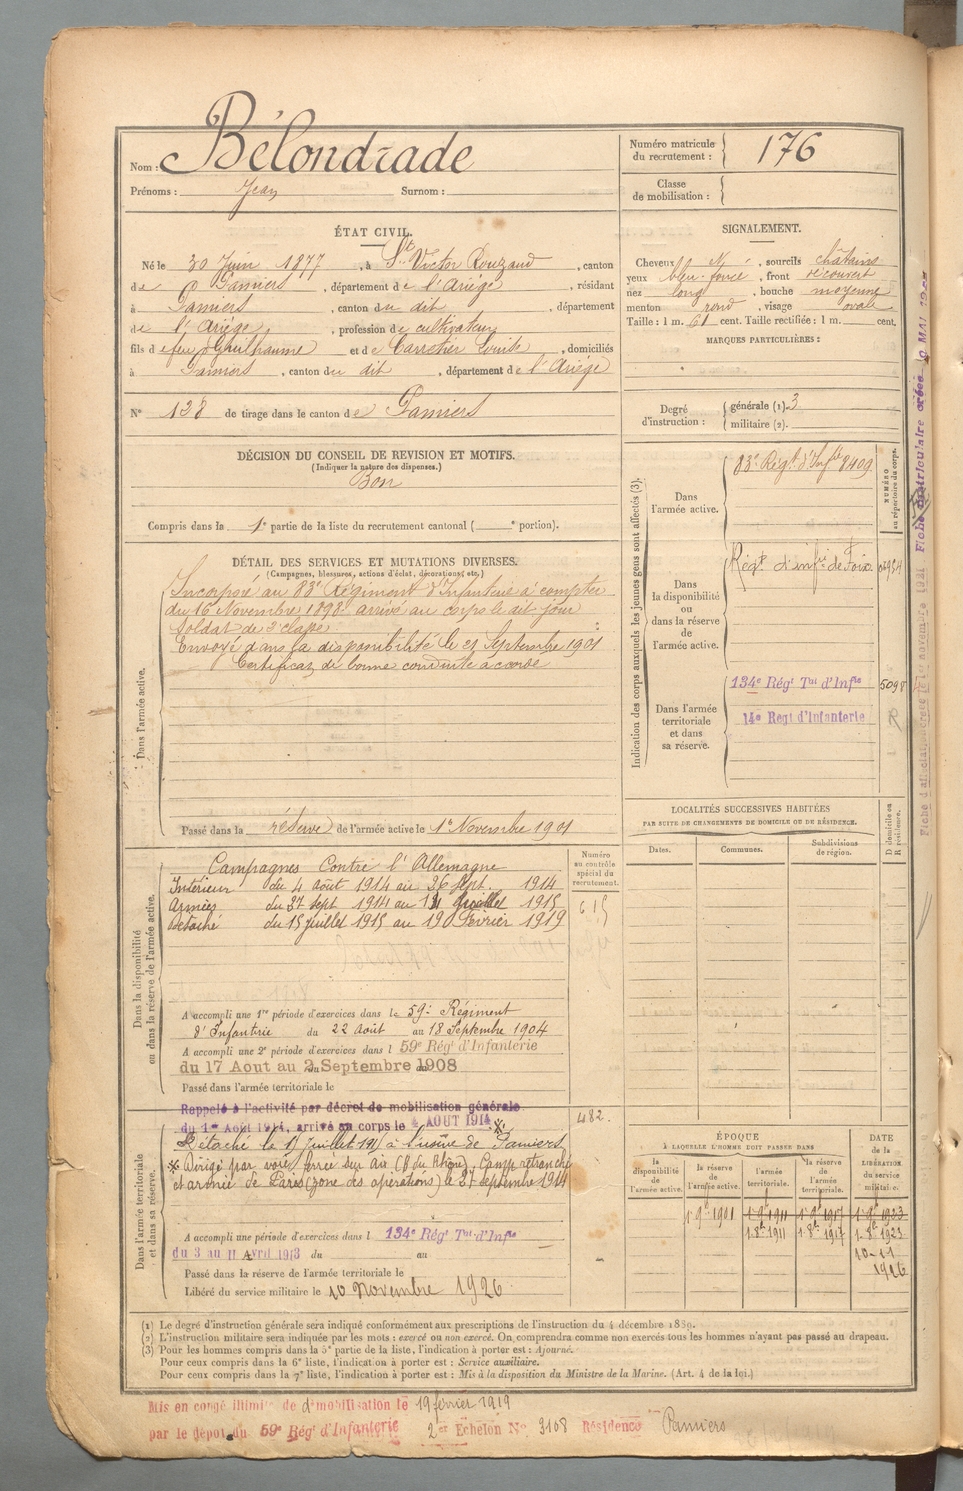 Nom : Bélondrade
Prénoms : Jean Surnom :
Numéro matricule du recrutement : 176
Classe de mobilisation :
ÉTAT CIVIL.
Né le 30 Juin 1877, à St Victor Rouzaud, canton
de Pamiers, département de l'Ariège, résidant
à Pamiers, canton du dit, département
de l'Ariège, profession de cultivateur
fils de feu Guilhaume et de Carretier Louise, domiciliés
à Pamiers, canton du dit, département de l'Ariège
N° 128 de tirage dans le canton de Pamiers
SIGNALEMENT.
Cheveux, sourcils châtains
yeux bleu foncé, front découvert
nez long, bouche moyenne
menton rond, visage ovale
Taille : 1 m. 61 cent. Taille rectifiée : 1 m. cent.
MARQUES PARTICULIÈRES :
Degré d'instruction : générale (1). 3
militaire (2).
DÉCISION DU CONSEIL DE REVISION ET MOTIFS.
(Indiquer la nature des dispenses.)
Bon
Compris dans la 1e partie de la liste du recrutement cantonal ( e portion).
DÉTAIL DES SERVICES ET MUTATIONS DIVERSES.
(Campagnes, blessures, actions d'éclat, décorations, etc.)
Dans l'armée active.
Incorporé au 83e Régiment d'Infanterie à compter
du 16 Novembre 1898 arrivé au corps le dit jour
Soldat de 2e classe
Envoyé dans la disponibilité le 21 Septembre 1901
Certificat de bonne conduite accordé
Passé dans la réserve de l'armée active le 1er Novembre 1901
Indication des corps auxquels les jeunes gens sont affectés (3).
NUMÉRO au répertoire du corps.
Dans l'armée active.
83e Régt d'Infie 8409
Dans la disponibilité ou dans la réserve de l'armée active.
Régt d'infie de Foix
Dans l'armée territoriale et dans sa réserve.
134e Régt Tal d'Infie 5098
14e Regt d'Infanterie R
LOCALITÉS SUCCESSIVES HABITÉES
PAR SUITE DE CHANGEMENTS DE DOMICILE OU DE RÉSIDENCE.
Dates. Communes. Subdivisions de région. D domicile ou R résidence.
Dans la disponibilité ou dans la réserve de l'armée active.
Numéro au contrôle spécial du recrutement.
Campagnes Contre l'Allemagne
Intérieur du 4 août 1914 au 26 sept. 1914
Armées du 27 sept 1914 au 14 Juillet 1915
Détaché du 15 juillet 1915 au 19 Février 1919
A accompli une 1re période d'exercices dans le 59e Régiment
d'Infanterie du 22 août au 18 Septembre 1904
A accompli une 2e période d'exercices dans l 59e Régt d'Infanterie
du 17 Aout au 2 Septembre 1908
Passé dans l'armée territoriale le
Dans l'armée territoriale et dans sa réserve.
Rappelé à l'activité par décret de mobilisation générale
du 1er Août 1914, arrivé au corps le 4 AOUT 1914
482
Détaché le 15 Juillet 1915 à l'usine de Pamiers
Dirigé par voie ferrée sur Air (B du Rhône), Camp retranché
et armée de Paris (zone des opérations) le 27 septembre 1914
A accompli une période d'exercices dans l 134e Régt Tal d'Infie
du 3 au 11 Avril 1913 du au
Passé dans la réserve de l'armée territoriale le
Libéré du service militaire le 10 Novembre 1926
ÉPOQUE
À LAQUELLE L'HOMME DOIT PASSER DANS
la disponibilité de l'armée active. la réserve de l'armée active. l'armée territoriale. la réserve de l'armée territoriale.
DATE de la LIBÉRATION du service militaire.
1.9e 1901 1.9e 1911 1.9e 1917 1.9e 1923
1.8e 1911 1.8e 1917 1.8e 1923
10-11
1926
(1) Le degré d'instruction générale sera indiqué conformément aux prescriptions de l'instruction du 4 décembre 1889.
(2) L'instruction militaire sera indiquée par les mots : exercé ou non exercé. On comprendra comme non exercés tous les hommes n'ayant pas passé au drapeau.
(3) Pour les hommes compris dans la 5e partie de la liste, l'indication à porter est : Ajourné.
Pour ceux compris dans la 6e liste, l'indication à porter est : Service auxiliaire.
Pour ceux compris dans la 7e liste, l'indication à porter est : Mis à la disposition du Ministre de la Marine. (Art. 4 de la loi.)
Mis en congé illimité de démobilisation le 19 février 1919
par le dépôt du 59e Régt d'Infanterie 2er Echelon N° 3108 Résidence Pamiers